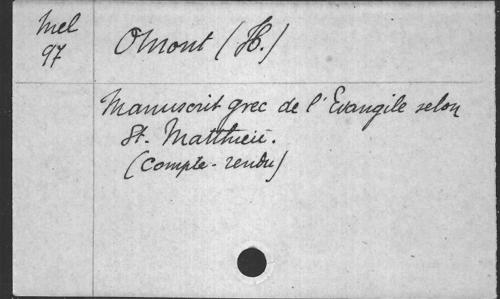 Mel
97
Omont (H.)
Manuscrit grec de l'Evangile selon
St. Matthieu.
(Compte-rendu)